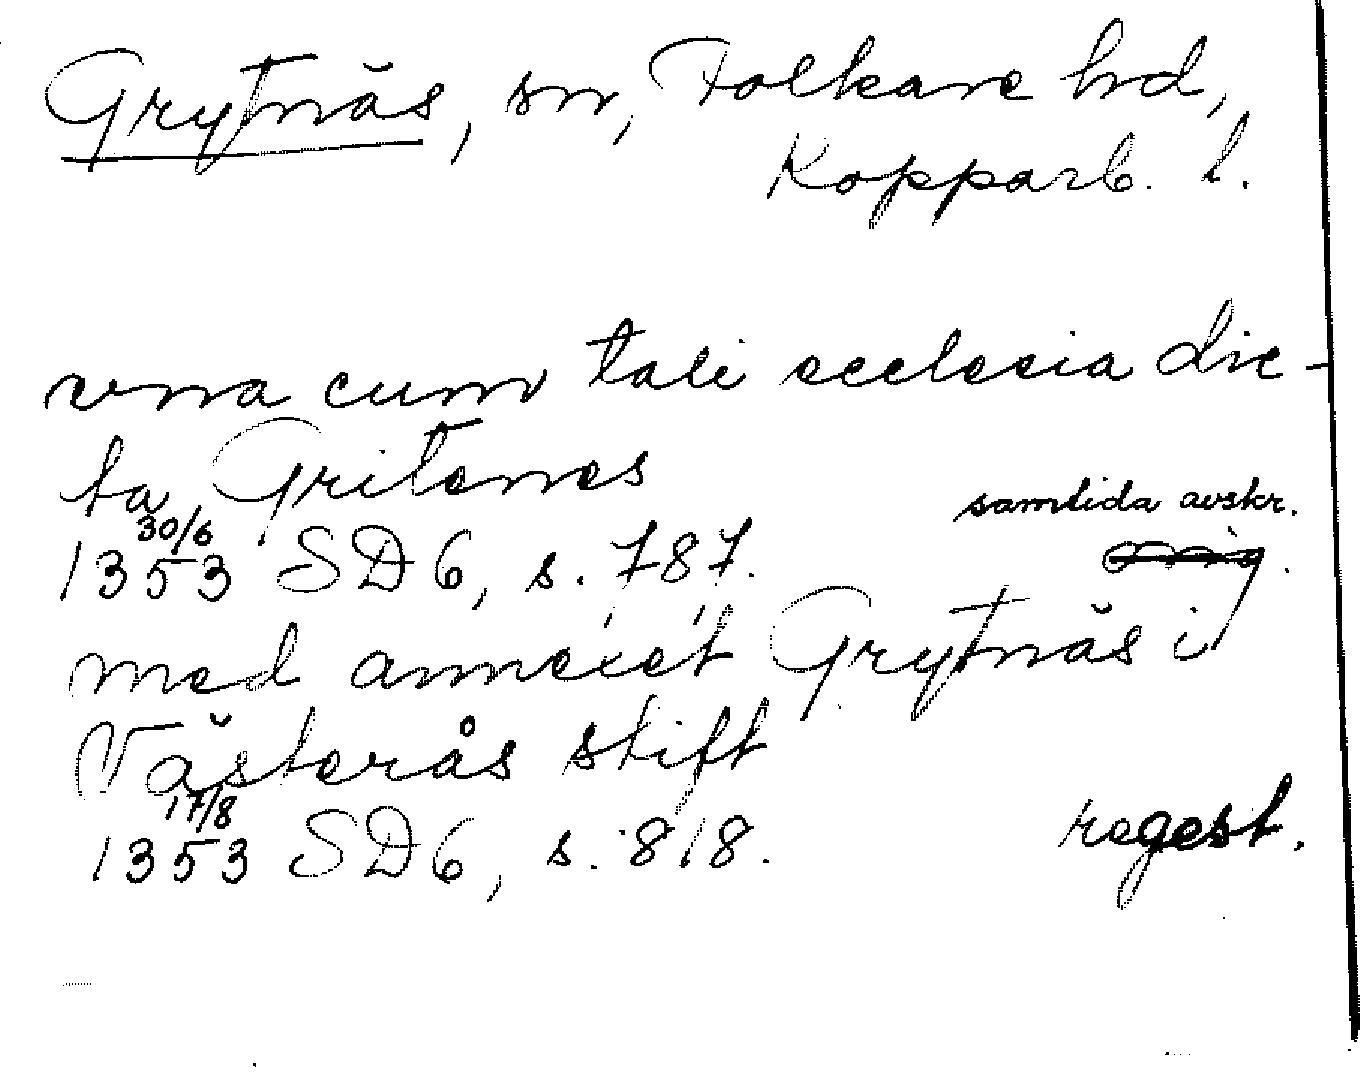 Grytnäs, sn, Folkare hd,
Kopparb. l.
vna cum tali ecclesia dic-
ta Gritenes
samtida avskr.
30/6
1353 SD6, s. 787. orig.
med annexet Grytnäs i
Västerås stift
17/8
1353 SD6, s. 818. regest.